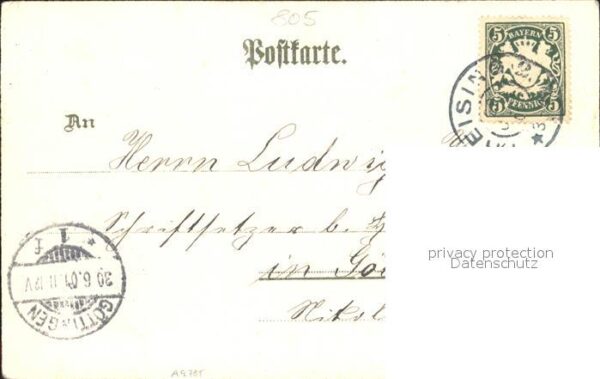 805
Postkarte.
5 BAYERN 5
5 PFENNIG 5
EISIN
An
Herrn Ludwi
Schriftsetzer b.
in Gö
Nikol
* 1 f
30.6.01. 11-12V
GÖTTINGEN
privacy protection
Datenschutz